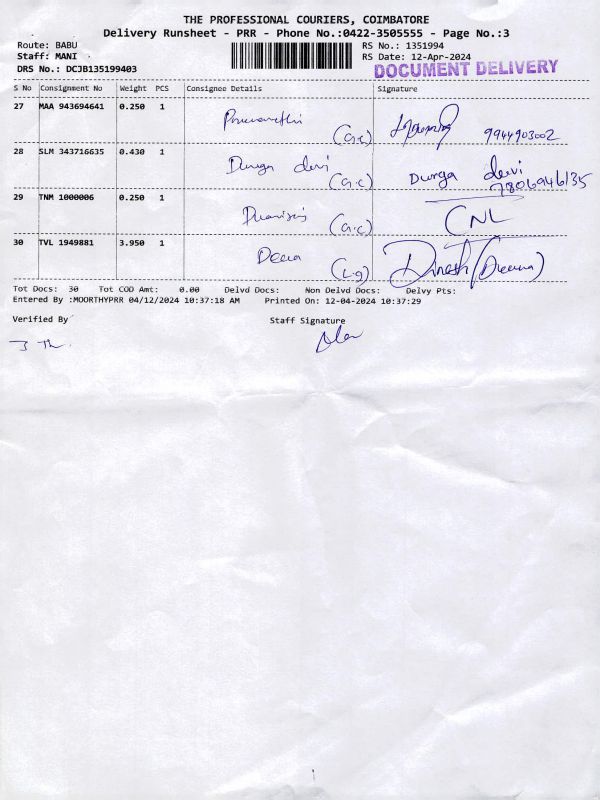 THE PROFESSIONAL COURIERS, COIMBATORE
Delivery Runsheet - PRR - Phone No.:0422-3505555 - Page No.:3
Route: BABU RS No.: 1351994
Staff: MANI RS Date: 12-Apr-2024
DRS No.: DCJB135199403 DOCUMENT DELIVERY
S No Consignment No Weight PCS Consignee Details Signature
27 MAA 943694641 0.250 1
(G.C) 9944903002
28 SLM 343716635 0.430 1 Durga devi Durga devi
(G.C) 7806946135
29 TNM 1000006 0.250 1
(G.C) CNL
30 TVL 1949881 3.950 1 Deena
(L.g) Dinesh (Deena)
Tot Docs: 30 Tot COD Amt: 0.00 Delvd Docs: Non Delvd Docs: Delvy Pts:
Entered By :MOORTHYPRR 04/12/2024 10:37:18 AM Printed On: 12-04-2024 10:37:29
Verified By Staff Signature